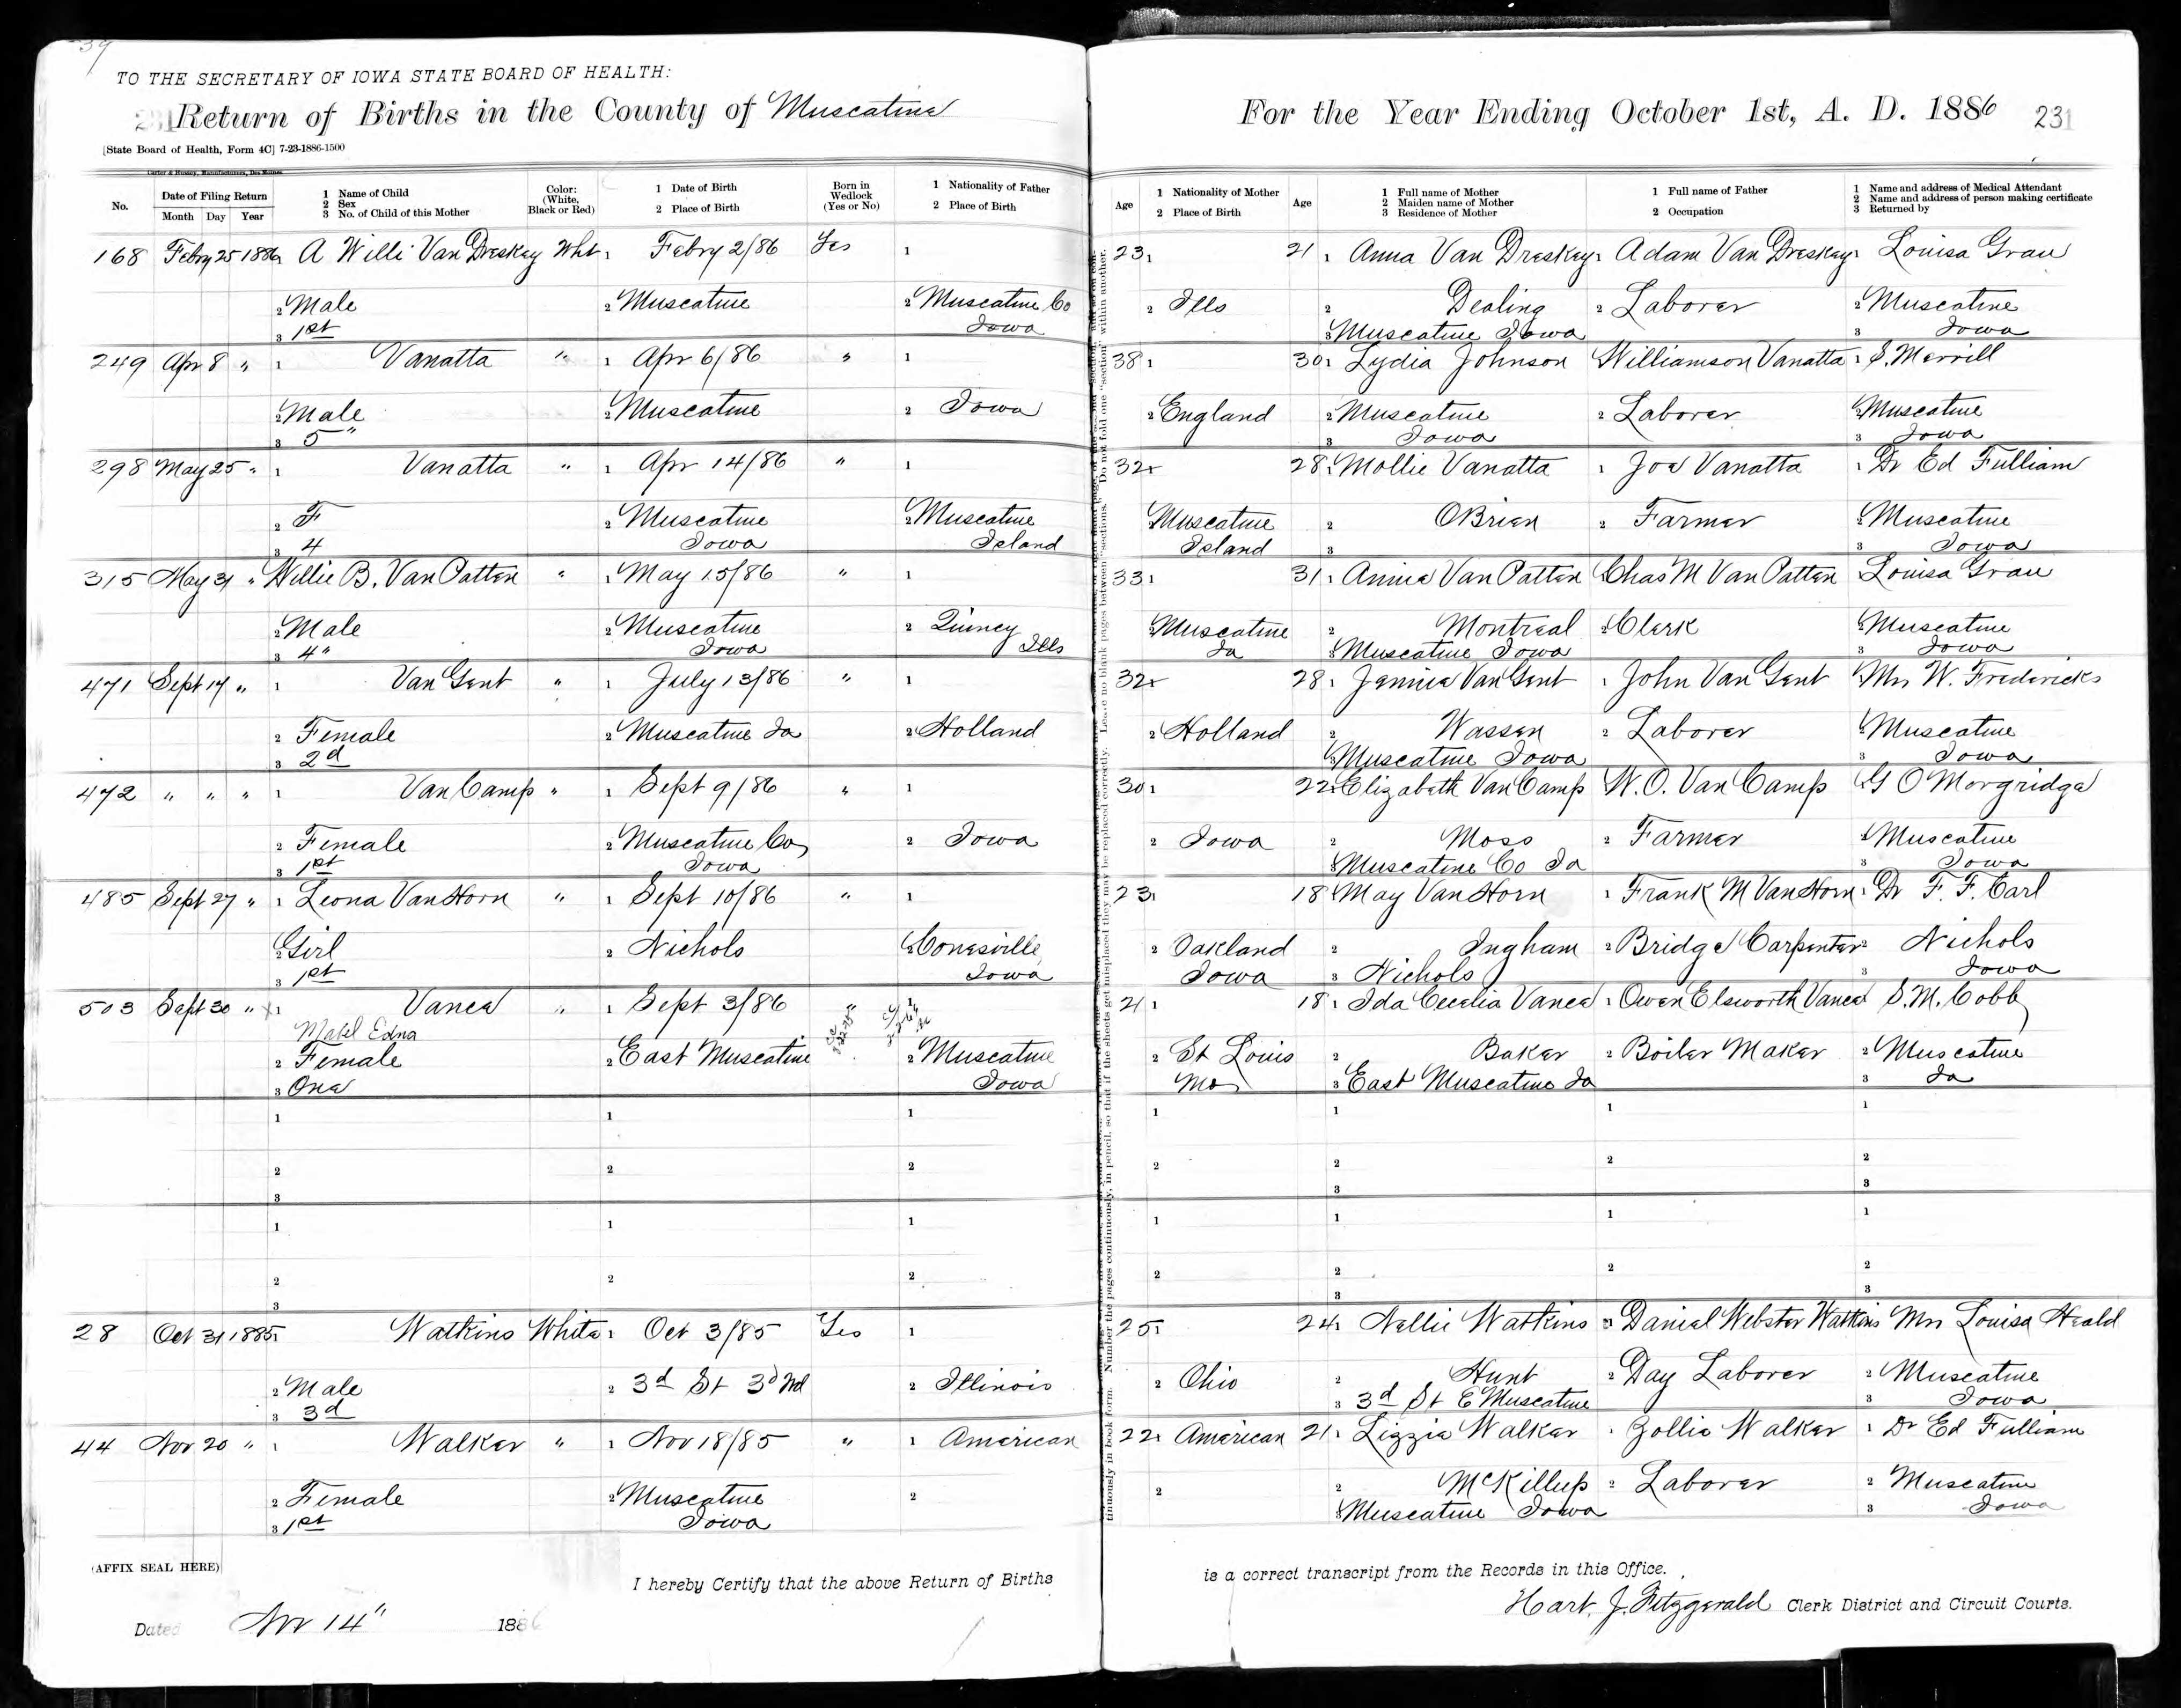 39
TO THE SECRETARY OF IOWA STATE BOARD OF HEALTH:
Return of Births in the County of Muscatine
For the Year Ending October 1st, A. D. 1886 231
[State Board of Health, Form 4C] 7-23-1886-1500
Carter & Hussey, Manufacturers, Des Moines
No. Date of Filing Return Month Day Year 1 Name of Child 2 Sex 3 No. of Child of this Mother Color: (White, Black or Red) 1 Date of Birth 2 Place of Birth Born in Wedlock (Yes or No) 1 Nationality of Father 2 Place of Birth Age 1 Nationality of Mother 2 Place of Birth Age 1 Full name of Mother 2 Maiden name of Mother 3 Residence of Mother 1 Full name of Father 2 Occupation 1 Name and address of Medical Attendant 2 Name and address of person making certificate 3 Returned by
168 Febry 25 1886 1 A Willi Van Dreskey Wht 1 Febry 2/86 Yes 1 23 1 21 1 Anna Van Dreskey 1 Adam Van Dreskey 1 Louisa Grau
2 Male 2 Muscatine 2 Muscatine Co 2 Ills 2 Dealing 2 Laborer 2 Muscatine
3 1st Iowa 3 Muscatine Iowa 3 Iowa
249 Apr 8 " 1 Vanatta " 1 Apr 6/86 " 1 38 1 30 1 Lydia Johnson Williamson Vanatta 1 S. Merrill
2 Male 2 Muscatine 2 Iowa 2 England 2 Muscatine 2 Laborer 2 Muscatine
3 5" 3 Iowa 3 Iowa
298 May 25 " 1 Vanatta " 1 Apr 14/86 " 1 32 1 28 1 Mollie Vanatta 1 Joe Vanatta 1 Dr Ed Fulliam
2 F 2 Muscatine 2 Muscatine Muscatine 2 OBrien 2 Farmer 2 Muscatine
3 4 Iowa Island Island 3 3 Iowa
315 May 31 " Willie B. Van Patten " 1 May 15/86 " 1 33 1 31 1 Annie Van Patten Chas M Van Patten Louisa Grau
2 Male 2 Muscatine 2 Quincy Muscatine 2 Montreal 2 Clerk 2 Muscatine
3 4" Iowa Ills Ia 3 Muscatine Iowa 3 Iowa
471 Sept 17 " 1 Van Gent " 1 July 13/86 " 1 32 1 28 1 Jennie Van Gent 1 John Van Gent Mrs W. Fredericks
2 Female 2 Muscatine Ia 2 Holland 2 Holland 2 Wassen 2 Laborer 2 Muscatine
3 2d 3 Muscatine Iowa 3 Iowa
472 " " " 1 Van Camp " 1 Sept 9/86 " 1 30 1 22 1 Elizabeth Van Camp W. O. Van Camp G O Morgridge
2 Female 2 Muscatine Co 2 Iowa 2 Iowa 2 Moss 2 Farmer 2 Muscatine
3 1st Iowa 3 Muscatine Co Ia 3 Iowa
485 Sept 27 " 1 Leona Van Horn " 1 Sept 10/86 " 1 23 1 18 1 May Van Horn 1 Frank M Van Horn 1 Dr F. F. Carl
2 Girl 2 Nichols 2 Conesville 2 Oakland 2 Ingham 2 Bridge Carpenter 2 Nichols
3 1st Iowa Iowa 3 Nichols 3 Iowa
503 Sept 30 " x 1 Vance " 1 Sept 3/86 " 1 21 1 18 1 Ida Cecelia Vance 1 Owen Elsworth Vance S. M. Cobb
Mabel Edna
2 Female 2 East Muscatine 2 Muscatine 2 St Louis 2 Baker 2 Boiler Maker 2 Muscatine
3 One Iowa Mo 3 East Muscatine Ia 3 Ia
1 1 1 1 1 1 1
2 2 2 2 2 2 2
3 3 3
1 1 1 1 1 1 1
2 2 2 2 2 2 2
3 3 3
28 Oct 31 1885 Watkins White 1 Oct 3/85 Yes 1 25 1 24 1 Nellie Watkins Daniel Webster Watkins Mrs Louisa Heald
2 Male 2 3d St 3d Wd 2 Illinois 2 Ohio 2 Hunt 2 Day Laborer 2 Muscatine
3 3d 3 3d St E Muscatine 3 Iowa
44 Nov 20 " 1 Walker " 1 Nov 18/85 " 1 American 22 1 American 21 1 Lizzie Walker 1 Zollie Walker 1 Dr Ed Fulliam
2 Female 2 Muscatine 2 2 2 McKillup 2 Laborer 2 Muscatine
3 1st Iowa 3 Muscatine Iowa 3 Iowa
(AFFIX SEAL HERE)
I hereby Certify that the above Return of Births is a correct transcript from the Records in this Office.
Dated Nov 14" 1886
Hart. J. Fitzgerald Clerk District and Circuit Courts.